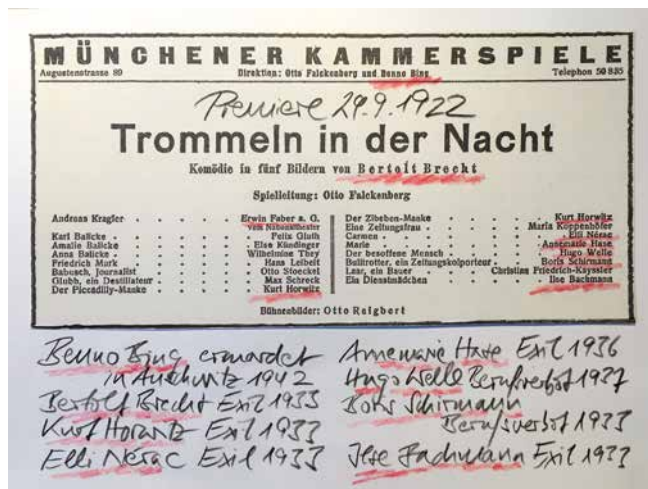 MÜNCHENER KAMMERSPIELE
Augustenstrasse 89 Direktion: Otto Falckenberg und Benno Bing Telephon 50 835
Premiere 29.9.1922
Trommeln in der Nacht
Komödie in fünf Bildern von Bertolt Brecht
Spielleitung: Otto Falckenberg
Andreas Kragler . . . . . Erwin Faber a. G.
vom Nationaltheater
Karl Balicke . . . . . Felix Gluth
Amalie Balicke . . . . . Else Kündinger
Anna Balicke . . . . . Wilhelmine They
Friedrich Murk . . . . . Hans Leibelt
Babusch, Journalist . . . . . Otto Stoeckel
Glubb, ein Destillateur . . . . . Max Schreck
Der Piccadilly-Manke . . . . . Kurt Horwitz
Der Zibeben-Manke . . . . . Kurt Horwitz
Eine Zeitungsfrau . . . . . Maria Koppenhöfer
Carmen . . . . . Elli Nerac
Marie . . . . . Annemarie Hase
Der besoffene Mensch . . . . . Hugo Welle
Bulltrotter, ein Zeitungskolporteur . Boris Schirmann
Laar, ein Bauer . . . . . Christian Friedrich-Kayssler
Ein Dienstmädchen . . . . . Ilse Bachmann
Bühnenbilder: Otto Reigbert
Benno Bing ermordet
in Auschwitz 1942
Bertolt Brecht Exil 1933
Kurt Horwitz Exil 1933
Elli Nerac Exil 1933
Annemarie Hase Exil 1936
Hugo Welle Berufsverbot 1937
Boris Schirmann
Berufsverbot 1933
Ilse Bachmann Exil 1933